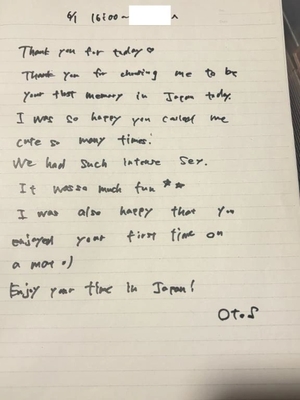 6/1 16:00~
Thank you for today♡
Thank you for choosing me to be
your first memory in Japan today.
I was so happy you called me
cute so many times!
We had such intense sex.
It was so much fun **
I was also happy that you
enjoyed your first time on
a mat :)
Enjoy your time in Japan!